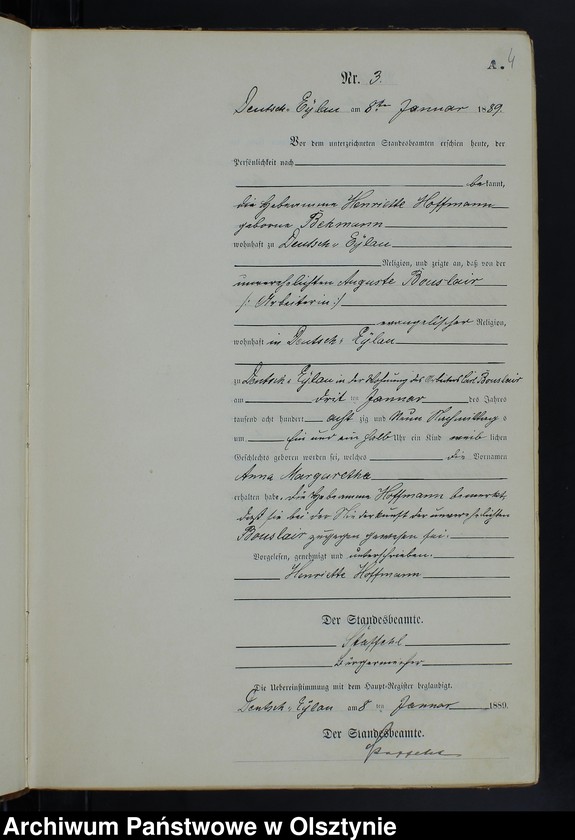 A. 4
Nr. 3.
Deutsch-Eylau am 8ten Januar 1889.
Vor dem unterzeichneten Standesbeamten erschien heute, der
Persönlichkeit nach
bekannt,
die Hebeamme Henriette Hoffmann
geborne Behmann
wohnhaft zu Deutsch-Eylau
Religion, und zeigte an, daß von der
unverehelichten Auguste Bouslair
/: Arbeiterin :/
evangelischer Religion,
wohnhaft in Deutsch-Eylau
zu Deutsch-Eylau in der Wohnung des Arbeiters Carl Bouslair
am drit ten Januar des Jahres
tausend acht hundert acht zig und Neun Nachmittags
um Ein und ein halb Uhr ein Kind weib lichen
Geschlechts geboren worden sei, welches die Vornamen
Anna Margarethe
erhalten habe. Die Hebeamme Hoffmann bemerkt,
daß sie bei der Niederkunft der unverehelichten
Bouslair zugegen gewesen sei.
Vorgelesen, genehmigt und unterschrieben.
Henriette Hoffmann
Der Standesbeamte.
Staffehl
Bürgermeister
Die Uebereinstimmung mit dem Haupt-Register beglaubigt.
Deutsch-Eylau am 8 ten Januar 1889.
Der Standesbeamte.
Staffehl
Archiwum Państwowe w Olsztynie